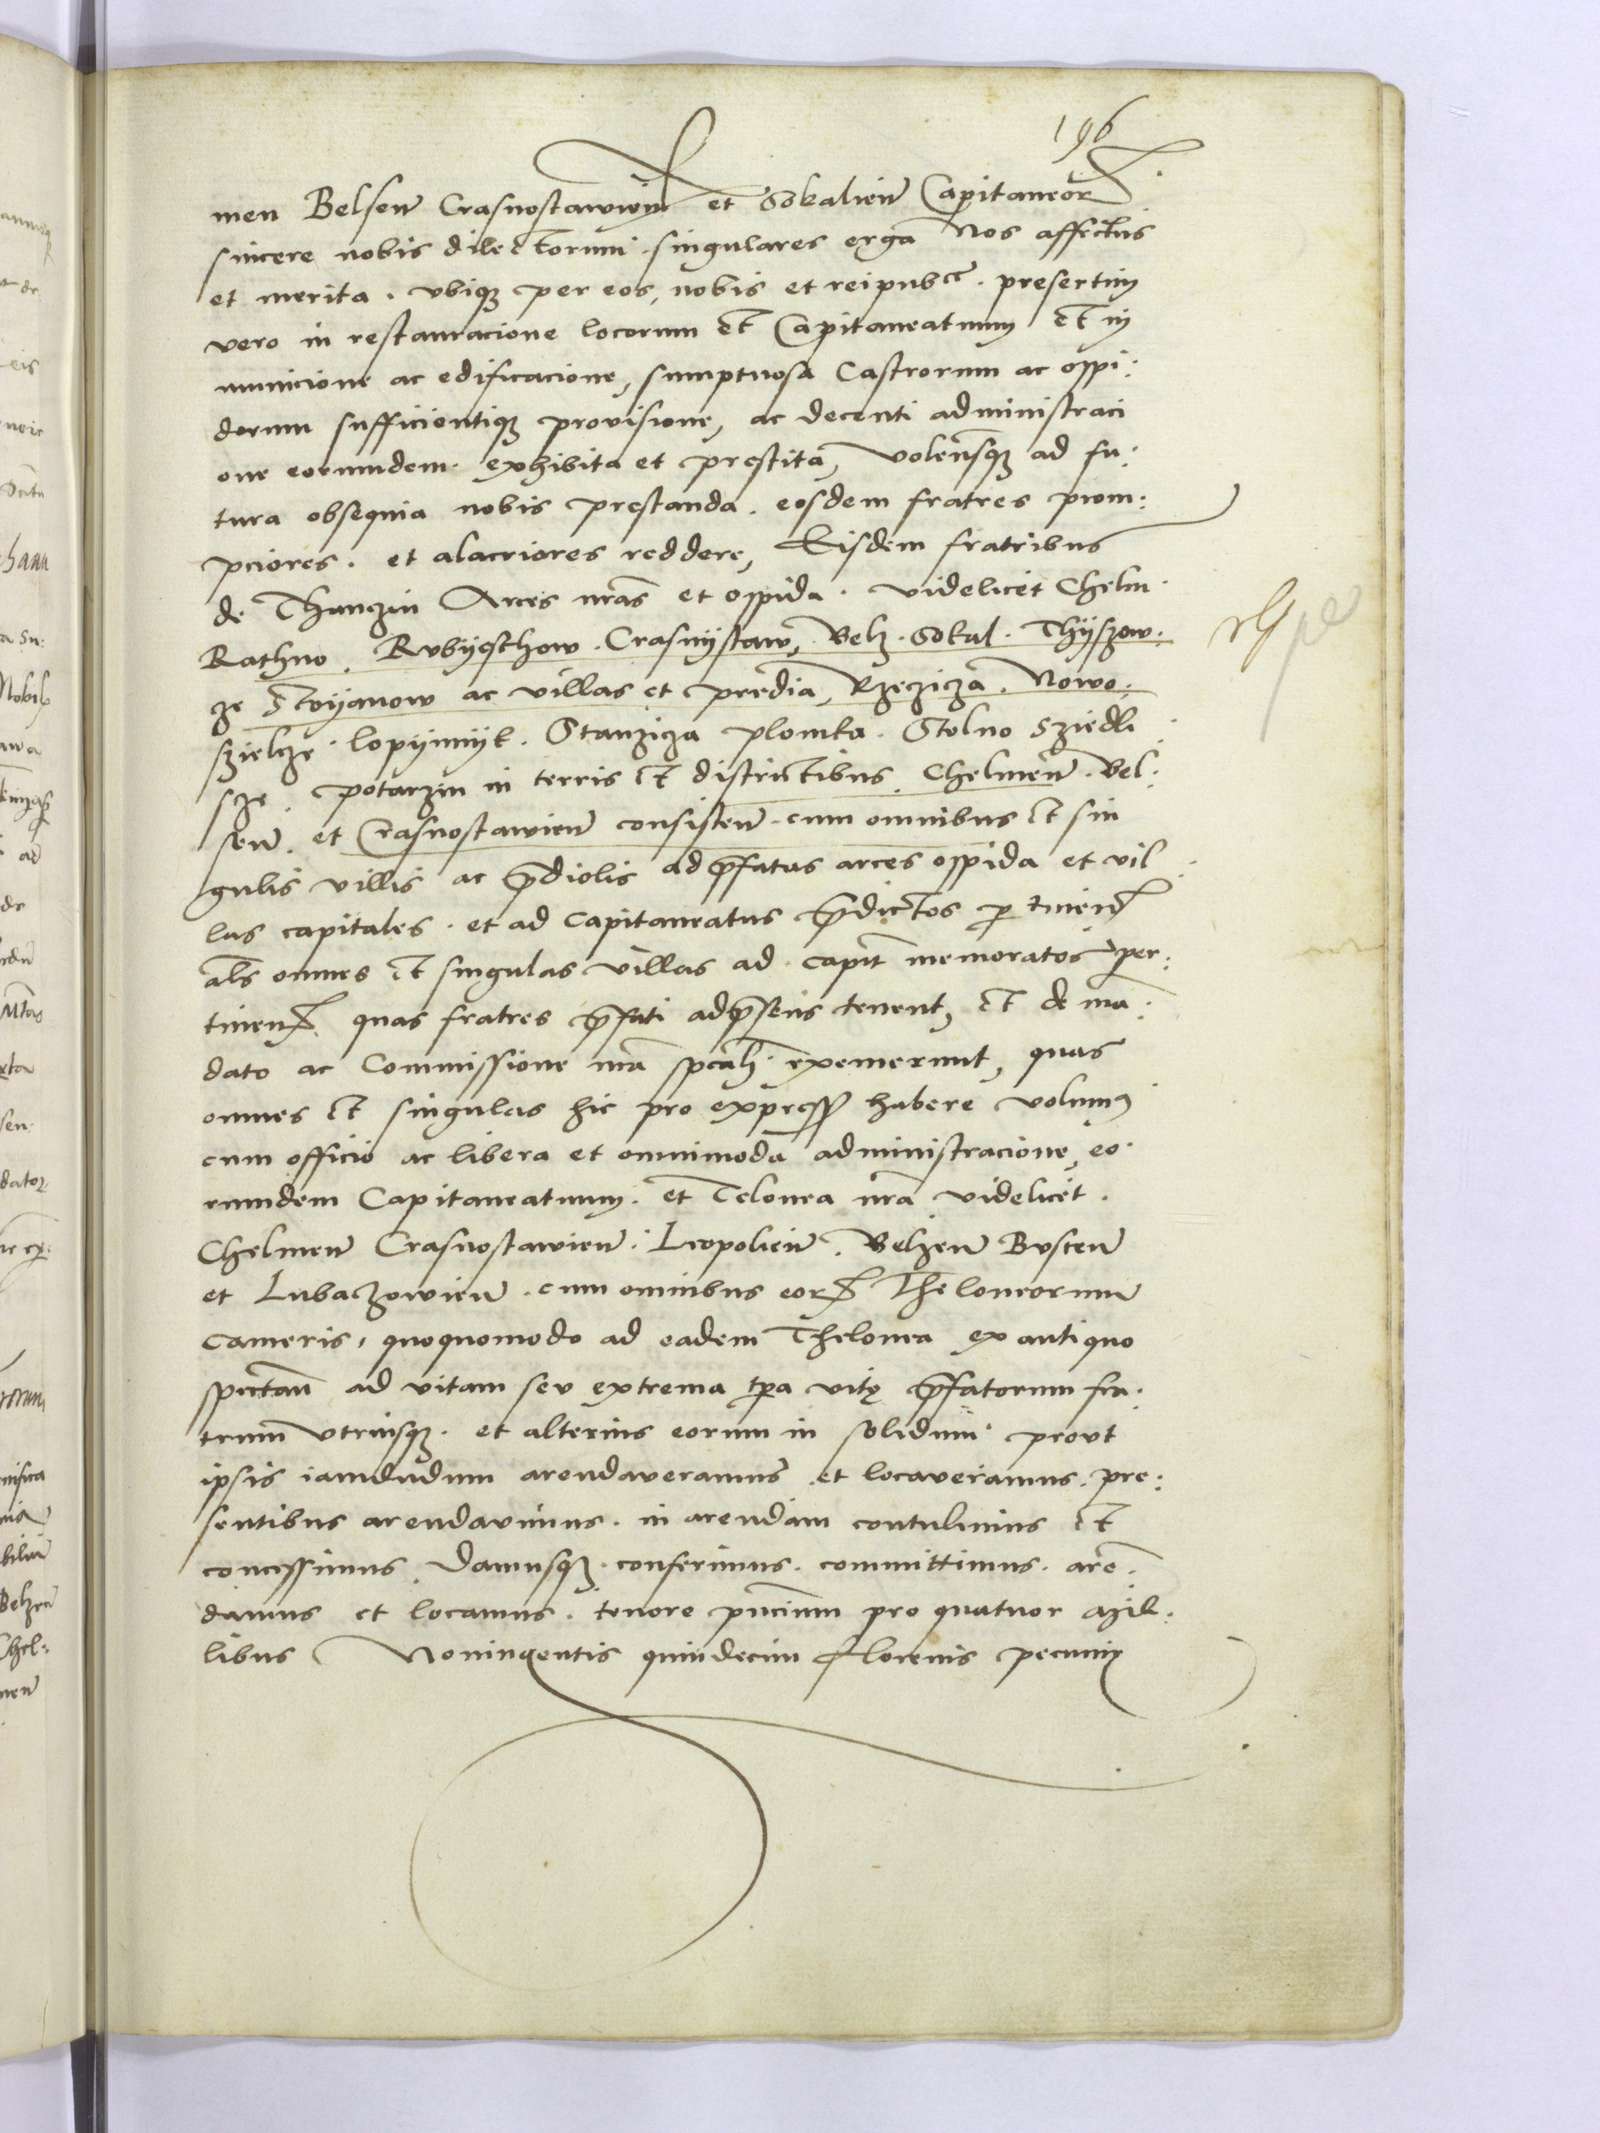 196
men Belsen Crasnostawien et Sokalien Capitaneor
sincere nobis dilectorum singulares erga Nos affectus
et merita . vbiqz per eos, nobis et reipubce . presertim
vero in restauracione locorum et Capitaneatuum et in
municione ac edificacione, sumptuosa Castrorum ac oppi:
dorum sufficientiqz provisione, ac decenti administraci
one eorumdem . exhibita et prestita, volensqz ad fu:
tura obsequia nobis prestanda . eosdem fratres prom:
pciores . et alacriores reddere, Eisdem fratribus
de Thanczin Arces nras et oppida . videlicet Chelm
Rathno . Rubyeschow . Crasnystaw, Belz . Sokal . Thyszow:
ze Stoyanow ac villas et predia, Rzeczicza . Nowo:
szielcze . lopynnyk . Stanzicza plomka . Stolno Sziedli
szze . potarzin in terris et districtibus . Chelmen . Bel:
sen . et Crasnostawien consisten . cum omnibus et sin
gulis villis ac prediolis ad prefatas arces oppida et vil
las capitales . et ad capitaneatus predictos pertinen
als omnes et singulas villas ad capit memoratos per:
tinen . quas fratres prefati ad presens tenent, et de man
dato ac Commissione nra spcali exemerunt, quas
omnes et singulas hic pro express habere volumus
cum officio ac libera et omnimoda administracione, eo
rumdem Capitaneatuum . et Telonea nra videlicet .
Chelmen Crasnostawien . Leopolien . Belzen Busten
et Lubaczowien . cum omnibus eor Theloneorum
Cameris, quoquomodo ad eadem Thelonea ex antiquo
spectan ad vitam seu extrema tpa vitę prefatorum fra:
trum vtriusqz . et alterius eorum in solidum prout
ipsis iamdudum arendaveramus et locaveramus . pre:
sentibus arendavimus . in arendam contulimus et
concessimus . Damusqz . conferimus . committimus . aren
damus et locamus . tenore pncium pro quatuor
libus Noningentis quindecim florenis pecunię